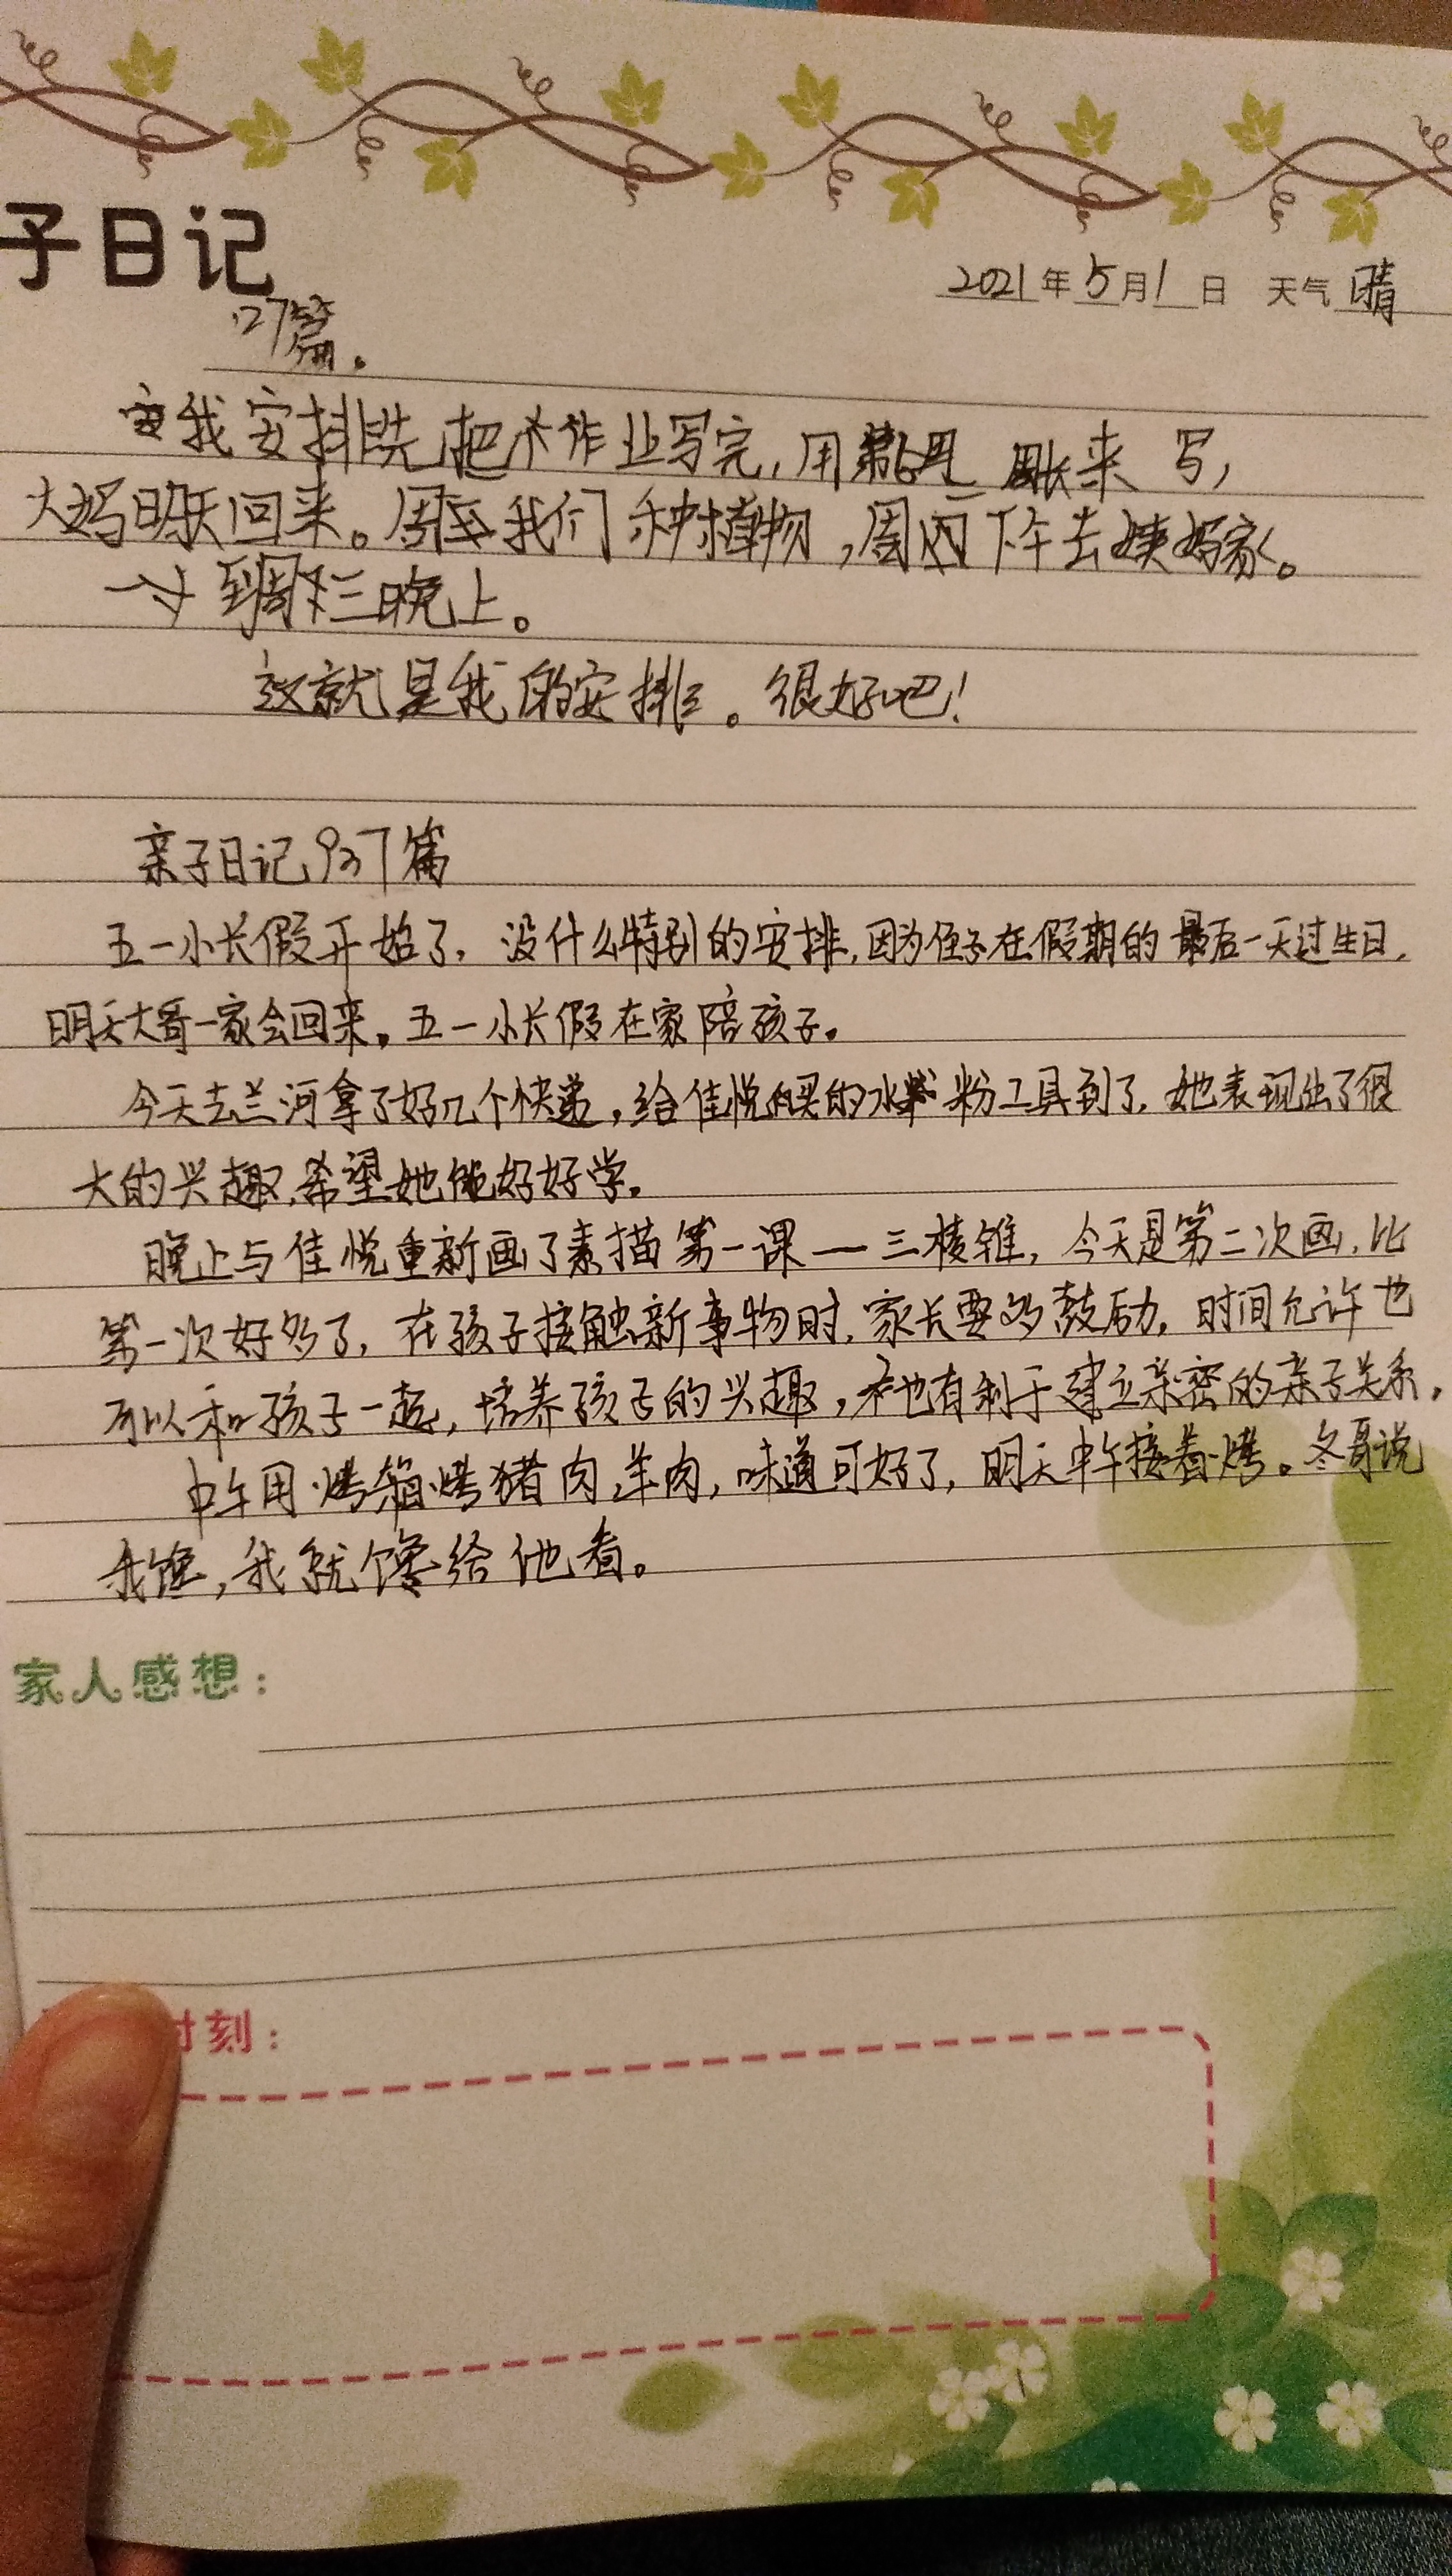 子日记
2021年5月1日 天气 晴
27篇。
我安排先把作业写完,用 来 写,
大妈明天回来。周 我们种植物,周四下午去姨妈家。
到周三晚上。
这就是我的安排。很好吧!
亲子日记937篇
五一小长假开始了,没什么特别的安排,因为侄子在假期的最后一天过生日,
明天大哥一家会回来。五一小长假在家陪孩子。
今天去兰河拿了好几个快递,给佳悦买的水粉工具到了,她表现出了很
大的兴趣,希望她能好好学。
晚上与佳悦重新画了素描第一课——三棱锥,今天是第二次画,比
第一次好多了,在孩子接触新事物时,家长要多鼓励,时间允许也
可以和孩子一起,培养孩子的兴趣,也有利于建立亲密的亲子关系。
中午用烤箱烤猪肉,羊肉,味道可好了,明天中午接着烤。冬哥说
我馋,我就馋给他看。
家人感想:
时刻: